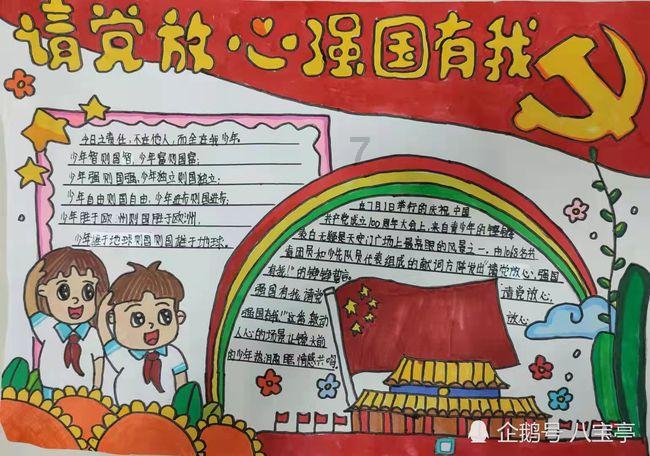 请党放心强国有我
今日之责任,不在他人,而全在我少年。
少年智则国智,少年富则国富;
少年强则国强,少年独立则国独立;
少年自由则国自由,少年进步则国进步;
少年胜于欧洲则国胜于欧洲,
少年雄于地球则国雄于地球。
7
在7月1举行的庆祝中国
共产党成立100周年大会上,来自青少年的
表白无疑是天安门广场上最亮眼的风景之一。由1068名共
青团员和少先队员代表组成的献词方阵发出"请党放心,强国
有我!"的铮铮誓言。
强国有我,请党 请党放心
强国有我!"这些激动 放心
人心的场景让镜头前
的少年热泪盈眶,情感共鸣。
企鹅号 八宝亭